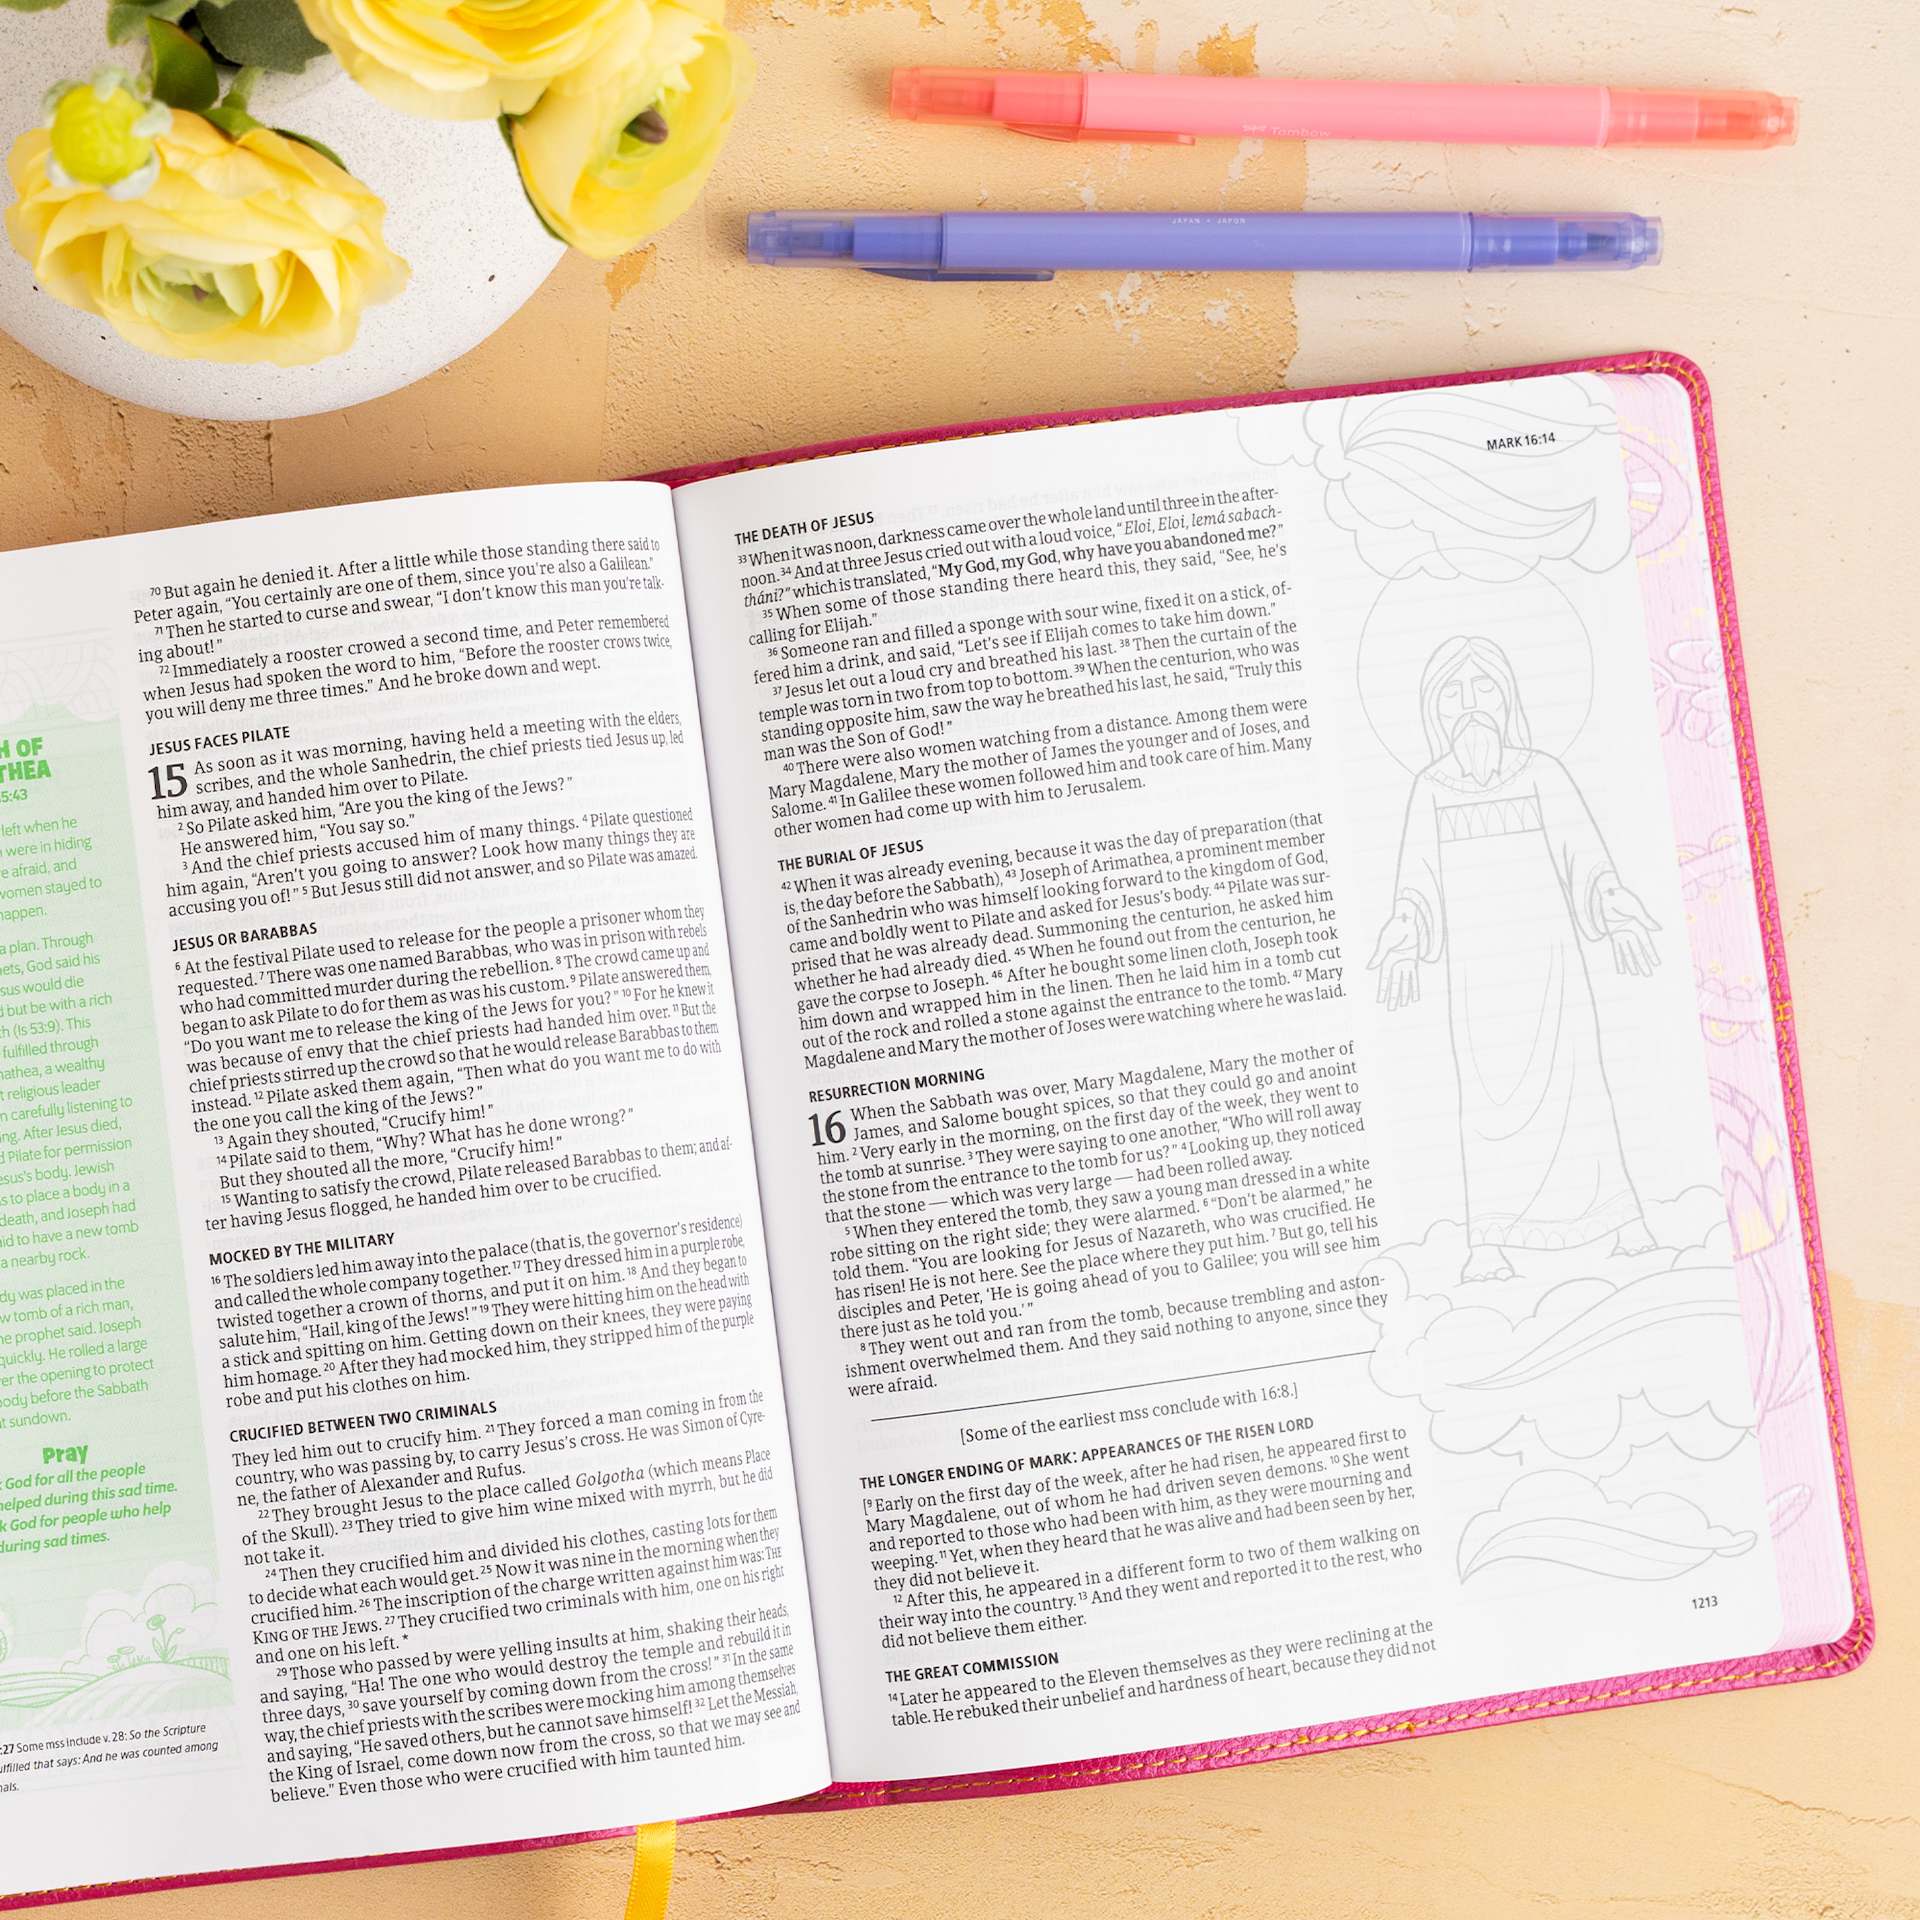 Tombow
JAPAN • JAPON
H OF
THEA
5:43
left when he
were in hiding
afraid, and
women stayed to
happen.
a plan. Through
God said his
would die
but be with a rich
(Is 53:9). This
fulfilled through
a wealthy
religious leader
carefully listening to
After Jesus died,
Pilate for permission
body. Jewish
to place a body in a
death, and Joseph had
to have a new tomb
a nearby rock.
was placed in the
tomb of a rich man,
prophet said. Joseph
quickly. He rolled a large
the opening to protect
body before the Sabbath
sundown.
Pray
God for all the people
helped during this sad time.
God for people who help
during sad times.
:27 Some mss include v. 28: So the Scripture
that says: And he was counted among
70 But again he denied it. After a little while those standing there said to
Peter again, “You certainly are one of them, since you're also a Galilean.”
71 Then he started to curse and swear, “I don't know this man you're talk-
ing about!”
72 Immediately a rooster crowed a second time, and Peter remembered
when Jesus had spoken the word to him, “Before the rooster crows twice,
you will deny me three times.” And he broke down and wept.
JESUS FACES PILATE
15 As soon as it was morning, having held a meeting with the elders,
scribes, and the whole Sanhedrin, the chief priests tied Jesus up, led
him away, and handed him over to Pilate.
2 So Pilate asked him, “Are you the king of the Jews?”
He answered him, “You say so.”
3 And the chief priests accused him of many things. 4 Pilate questioned
him again, “Aren't you going to answer? Look how many things they are
accusing you of!” 5 But Jesus still did not answer, and so Pilate was amazed.
JESUS OR BARABBAS
6 At the festival Pilate used to release for the people a prisoner whom they
requested. 7 There was one named Barabbas, who was in prison with rebels
who had committed murder during the rebellion. 8 The crowd came up and
began to ask Pilate to do for them as was his custom. 9 Pilate answered them,
“Do you want me to release the king of the Jews for you?” 10 For he knew it
was because of envy that the chief priests had handed him over. 11 But the
chief priests stirred up the crowd so that he would release Barabbas to them
instead. 12 Pilate asked them again, “Then what do you want me to do with
the one you call the king of the Jews?”
13 Again they shouted, “Crucify him!”
14 Pilate said to them, “Why? What has he done wrong?”
But they shouted all the more, “Crucify him!”
15 Wanting to satisfy the crowd, Pilate released Barabbas to them; and af-
ter having Jesus flogged, he handed him over to be crucified.
MOCKED BY THE MILITARY
16 The soldiers led him away into the palace (that is, the governor's residence)
and called the whole company together. 17 They dressed him in a purple robe,
twisted together a crown of thorns, and put it on him. 18 And they began to
salute him, “Hail, king of the Jews!” 19 They were hitting him on the head with
a stick and spitting on him. Getting down on their knees, they were paying
him homage. 20 After they had mocked him, they stripped him of the purple
robe and put his clothes on him.
CRUCIFIED BETWEEN TWO CRIMINALS
They led him out to crucify him. 21 They forced a man coming in from the
country, who was passing by, to carry Jesus's cross. He was Simon of Cyre-
ne, the father of Alexander and Rufus.
22 They brought Jesus to the place called Golgotha (which means Place
of the Skull). 23 They tried to give him wine mixed with myrrh, but he did
not take it.
24 Then they crucified him and divided his clothes, casting lots for them
to decide what each would get. 25 Now it was nine in the morning when they
crucified him. 26 The inscription of the charge written against him was: THE
KING OF THE JEWS. 27 They crucified two criminals with him, one on his right
and one on his left. *
29 Those who passed by were yelling insults at him, shaking their heads,
and saying, “Ha! The one who would destroy the temple and rebuild it in
three days, 30 save yourself by coming down from the cross!” 31 In the same
way, the chief priests with the scribes were mocking him among themselves
and saying, “He saved others, but he cannot save himself! 32 Let the Messiah,
the King of Israel, come down now from the cross, so that we may see and
believe.” Even those who were crucified with him taunted him.
MARK 16:14
THE DEATH OF JESUS
33 When it was noon, darkness came over the whole land until three in the after-
noon. 34 And at three Jesus cried out with a loud voice, “Eloi, Eloi, lemá sabach-
tháni?” which is translated, “My God, my God, why have you abandoned me?”
35 When some of those standing there heard this, they said, “See, he's
calling for Elijah.”
36 Someone ran and filled a sponge with sour wine, fixed it on a stick, of-
fered him a drink, and said, “Let's see if Elijah comes to take him down.”
37 Jesus let out a loud cry and breathed his last. 38 Then the curtain of the
temple was torn in two from top to bottom. 39 When the centurion, who was
standing opposite him, saw the way he breathed his last, he said, “Truly this
man was the Son of God!”
40 There were also women watching from a distance. Among them were
Mary Magdalene, Mary the mother of James the younger and of Joses, and
Salome. 41 In Galilee these women followed him and took care of him. Many
other women had come up with him to Jerusalem.
THE BURIAL OF JESUS
42 When it was already evening, because it was the day of preparation (that
is, the day before the Sabbath), 43 Joseph of Arimathea, a prominent member
of the Sanhedrin who was himself looking forward to the kingdom of God,
came and boldly went to Pilate and asked for Jesus's body. 44 Pilate was sur-
prised that he was already dead. Summoning the centurion, he asked him
whether he had already died. 45 When he found out from the centurion, he
gave the corpse to Joseph. 46 After he bought some linen cloth, Joseph took
him down and wrapped him in the linen. Then he laid him in a tomb cut
out of the rock and rolled a stone against the entrance to the tomb. 47 Mary
Magdalene and Mary the mother of Joses were watching where he was laid.
RESURRECTION MORNING
16 When the Sabbath was over, Mary Magdalene, Mary the mother of
James, and Salome bought spices, so that they could go and anoint
him. 2 Very early in the morning, on the first day of the week, they went to
the tomb at sunrise. 3 They were saying to one another, “Who will roll away
the stone from the entrance to the tomb for us?” 4 Looking up, they noticed
that the stone — which was very large — had been rolled away.
5 When they entered the tomb, they saw a young man dressed in a white
robe sitting on the right side; they were alarmed. 6 “Don't be alarmed,” he
told them. “You are looking for Jesus of Nazareth, who was crucified. He
has risen! He is not here. See the place where they put him. 7 But go, tell his
disciples and Peter, ‘He is going ahead of you to Galilee; you will see him
there just as he told you.’”
8 They went out and ran from the tomb, because trembling and aston-
ishment overwhelmed them. And they said nothing to anyone, since they
were afraid.
[Some of the earliest mss conclude with 16:8.]
THE LONGER ENDING OF MARK: APPEARANCES OF THE RISEN LORD
[9 Early on the first day of the week, after he had risen, he appeared first to
Mary Magdalene, out of whom he had driven seven demons. 10 She went
and reported to those who had been with him, as they were mourning and
weeping. 11 Yet, when they heard that he was alive and had been seen by her,
they did not believe it.
12 After this, he appeared in a different form to two of them walking on
their way into the country. 13 And they went and reported it to the rest, who
did not believe them either.
THE GREAT COMMISSION
14 Later he appeared to the Eleven themselves as they were reclining at the
table. He rebuked their unbelief and hardness of heart, because they did not
1213